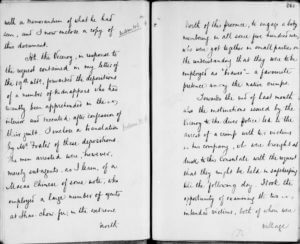 with a memorandum of what he had
seen, and I now inclose a copy of
this document.
The Viceroy, in response to
the request contained in my letter of
the 19th ulto, forwarded the depositions
of a number of kidnappers who had
recently been apprehended in the
interior and executed, after confession of
their guilt. I inclose a translation
by Mr. of these depositions.
The men arrested were, however,
merely sub-agents, as I learn, of a
Macao Chinese of some note, who
employed a large number of agents
at Chao chow foo, in the extreme
north
261
North of this province, to engage a large
numbering in all some five hundred men,
who were got together in small parties on
the understanding that they were to be
employed as "braves" - a favourite
pretence in the native
Towards the end of last month
the instructions issued by the
Viceroy to the Police led to the
arrest of a crimp with his victims
in his company, who were brought at
to the Consulate with the request
that they might be held in safekeeping
till the following day. I took the
opportunity of examining the two
intended victims, both of whom were
village